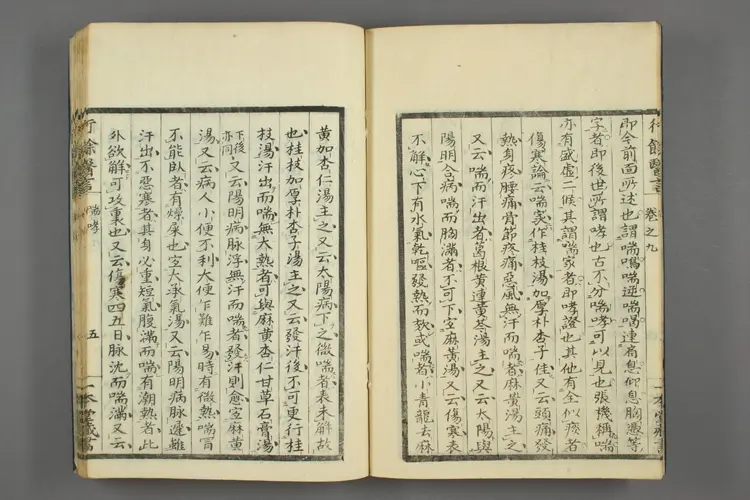 行餘醫言 卷之九
即今前面所述也謂喘喝喘逆喘喝連肩息仰息胸憑等
字者即後世所謂哮也古不分喘哮可以見也張機稱喘
亦有盛虛二候其謂喘家者即哮證也其他有全似痰者
傷寒論云喘家作桂枝湯加厚朴杏子佳又云頭痛發
熱身疼腰痛骨節疼痛惡風無汗而喘者麻黄湯主之
又云喘而汗出者葛根黄連黄芩湯主之又云太陽與
陽明合病喘而胸滿者不可下宜麻黄湯又云傷寒表
不解心下有水氣乾嘔發熱而欬或喘者小青龍去麻
黄加杏仁湯主之又云太陽病下之微喘者表未解故
也桂枝加厚朴杏子湯主之又云發汗後不可更行桂
枝湯汗出而喘無大熱者可與麻黄杏仁甘草石膏湯
下後亦同又云陽明病脉浮無汗而喘者發汗則愈宜麻黄
湯又云病人小便不利大便乍難乍易時有微熱喘冒
不能臥者有燥屎也宜大承氣湯又云陽明病脉遲雖
汗出不惡寒者其身必重短氣腹滿而喘有潮熱者此
外欲解可攻裏也又云傷寒四五日脉沈而喘滿又云
行餘醫言 喘哮 五 一本堂藏書